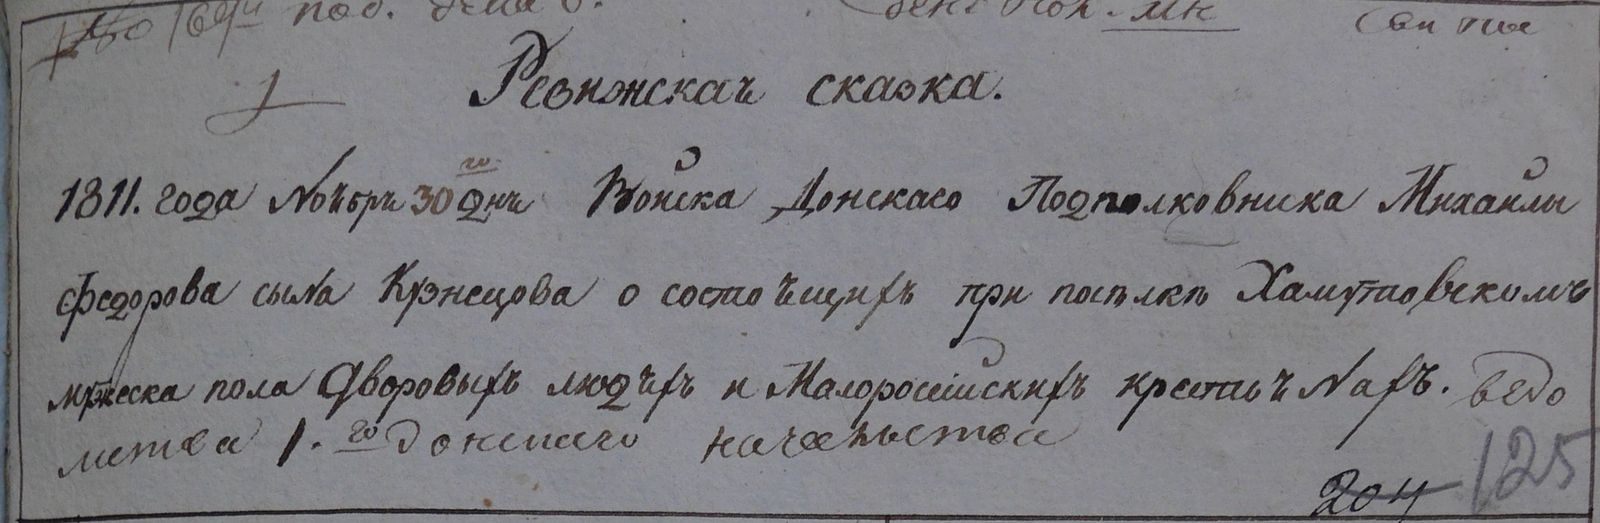 под.
1
Ревижскаѧ сказка.
1811. года Ноѧбрѧ 30го днѧ Войска Донскаго Подполковника Михайлы
Федорова сына Кузнецова о состоѧщихъ при посѣлкѣ Хамутовскомъ
мужеска пола дворовыхъ людѧхъ и Малоросійскихъ крестьѧнахъ. ведо
мства 1.го донскаго начальства
204 125